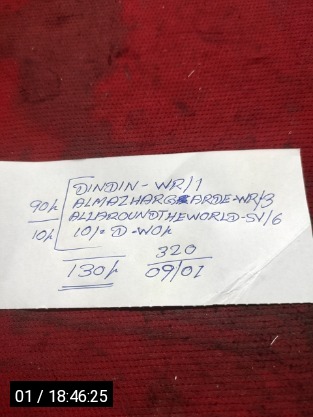 DINDIN - WR/1
90/- ALMAZHARGARDE-WR/3
10/- ALLAROUNDTHEWORLD-SV/6
10/= D = WO/-
130/- 320
09/01
01 / 18:46:25